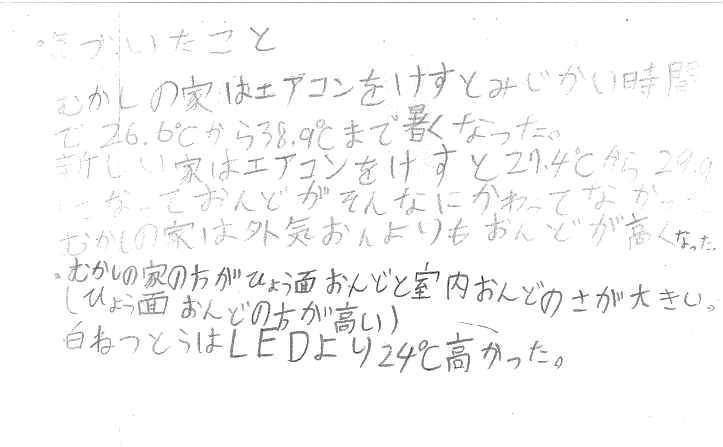 ・気づいたこと
むかしの家はエアコンをけすとみじかい時間
で26.6℃から38.9℃まで暑くなった。
新しい家はエアコンをけすと27.4℃から29.9
になっておんどがそんなにかわってなかった
むかしの家は外気おんよりもおんどが高くなった。
・むかしの家の方がひょう面おんどと室内おんどのさが大きい。
(ひょう面おんどの方が高い)
白ねつとうはLEDより24℃高かった。